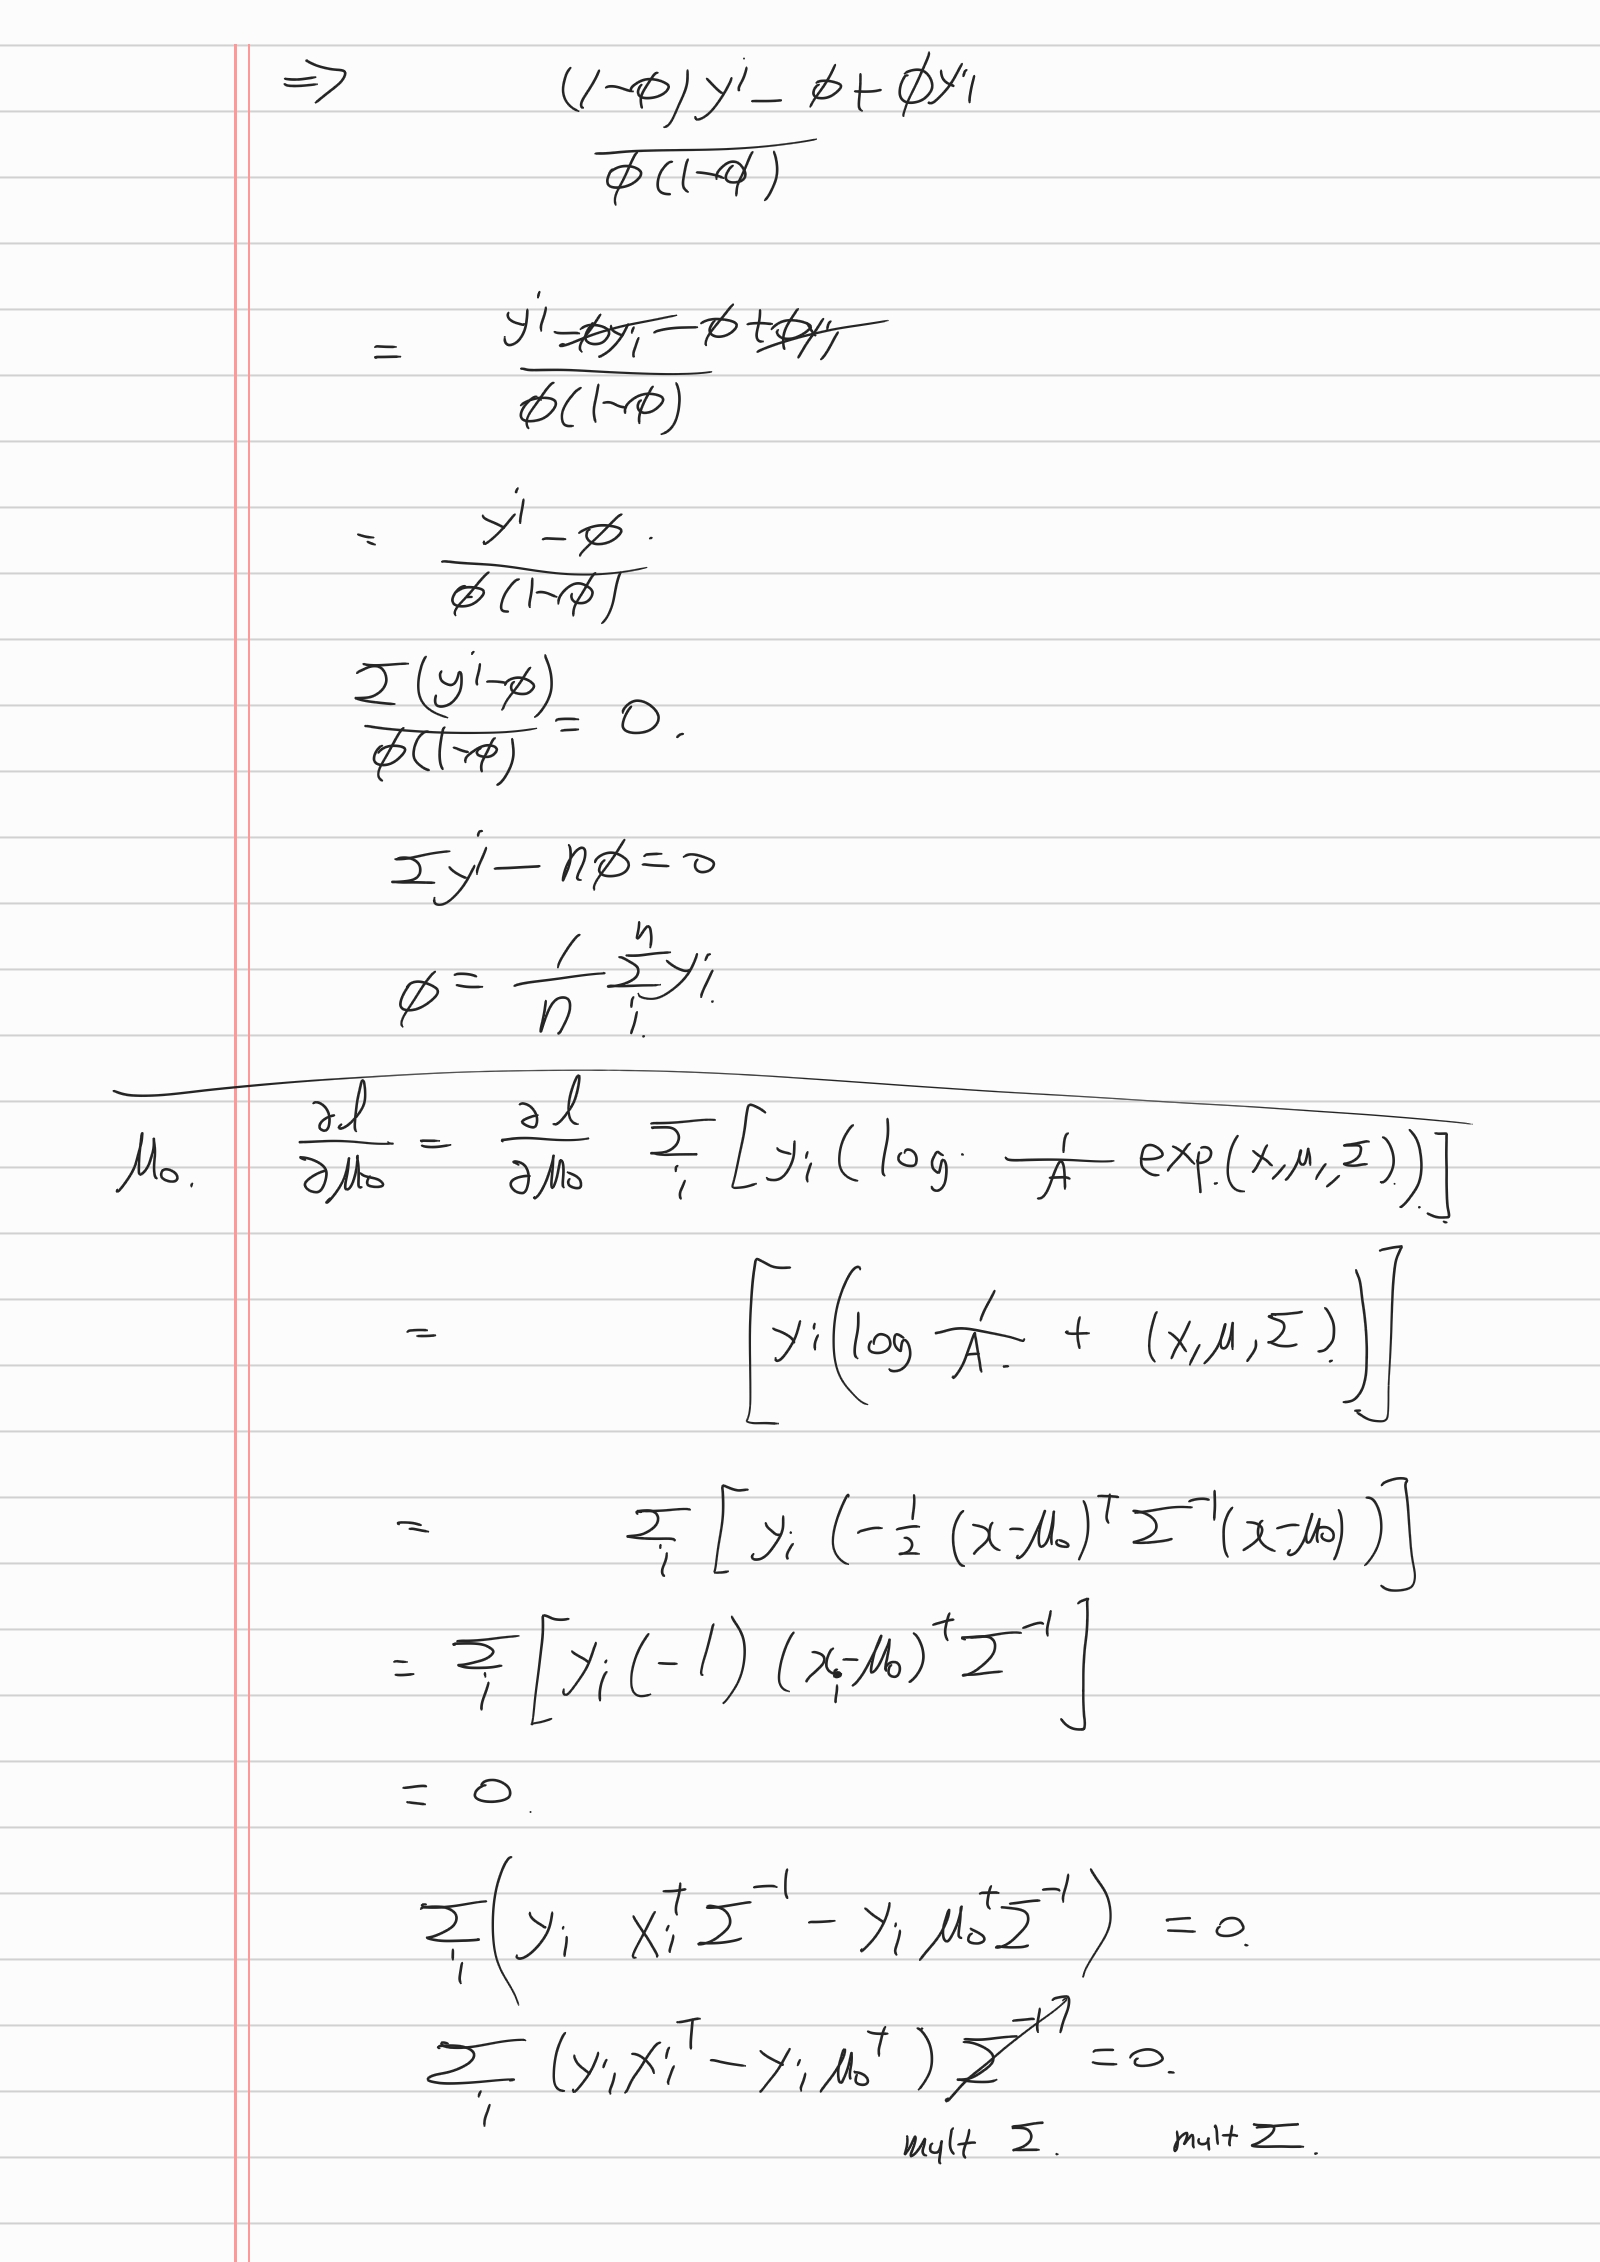 ⇒ (1-ϕ)yⁱ - ϕ + ϕyⁱ
ϕ(1-ϕ)
= yⁱ - ϕyᵢ - ϕ + ϕyᵢ
ϕ(1-ϕ)
= yⁱ - ϕ.
ϕ(1-ϕ)
Σ(yⁱ-ϕ)
ϕ(1-ϕ) = 0.
Σyⁱ - nϕ = 0
ϕ = 1/n Σᵢⁿ yᵢ
μ₀. ∂l/∂μ₀ = ∂l/∂μ₀ Σᵢ [yᵢ(log. 1/A exp.(x,μ,,Σ).)]
= [yᵢ(log 1/A. + (x,μ,Σ))]
= Σᵢ [yᵢ (-½ (x-μ₀)ᵀ Σ⁻¹(x-μ₀))]
= Σᵢ [yᵢ(-1) (xᵢ-μ₀)ᵀ Σ⁻¹]
= 0.
Σᵢ(yᵢ xᵢᵀ Σ⁻¹ - yᵢ μ₀ᵀ Σ⁻¹) = 0.
Σᵢ (yᵢxᵢᵀ - yᵢ μ₀ᵀ) Σ⁻¹ = 0.
mult Σ. mult Σ.